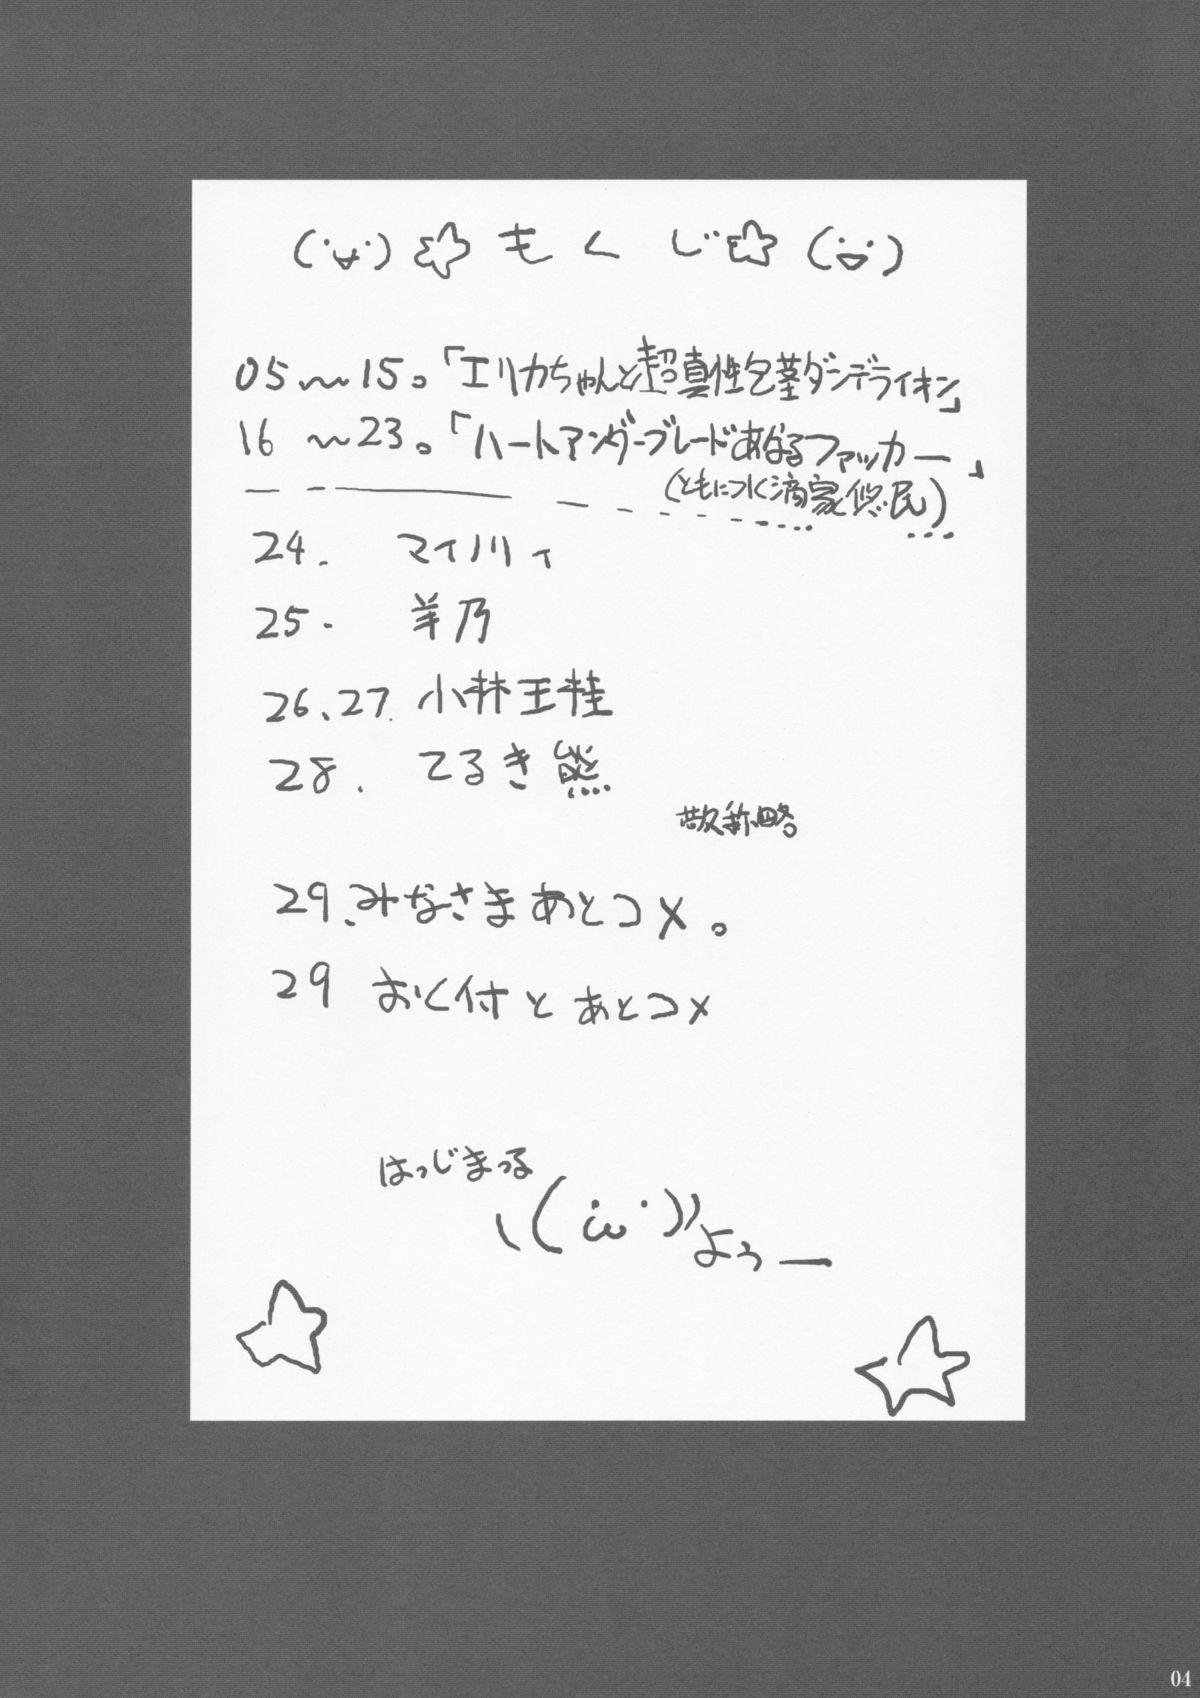 (・∀・)☆もくじ☆(・▽・)
05〜15。「エリカちゃんと超真性包茎ダンデライオン」
16〜23。「ハートアンダーブレードあなるファッカー」
(ともに 家悠民)
24. マイノリィ
25. 羊乃
26、27. 小林王桂
28. てるき熊
敬称略。
29、みなさまあとコメ。
29 おく付とあとコメ
はっじまっる
ヽ(・ω・)ノよぅー
04